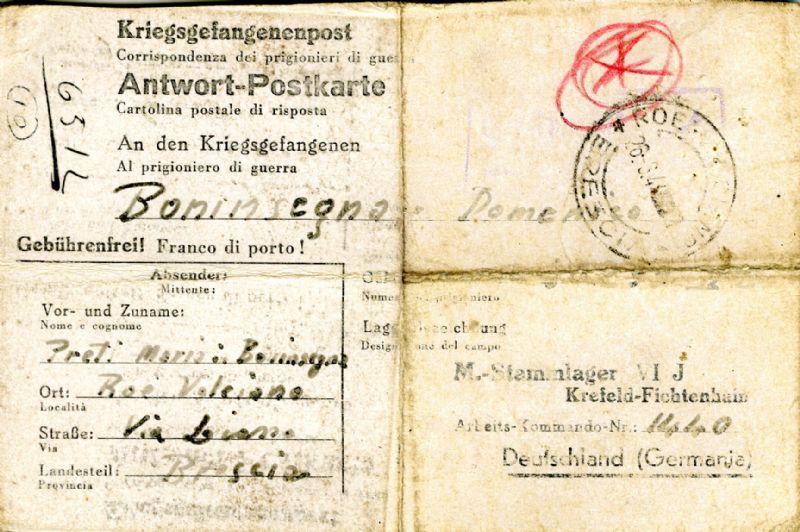 Kriegsgefangenenpost
Corrispondenza dei prigionieri di gue
Antwort-Postkarte
Cartolina postale di risposta
An den Kriegsgefangenen
Al prigioniero di guerra
Boninsegna Domenico
Gebührenfrei! Franco di porto!
Absender:
Mittente:
Vor- und Zuname:
Nome e cognome
Preti Maria Boninsegna
Ort: Roe Volciano
Località
Straße: Via Liano
Via
Landesteil: Brescia
Provincia
6312
10
M.-Stammlager VI J
Krefeld-Fichtenhain
Arbeits-Kommando-Nr.: 440
Deutschland (Germania)